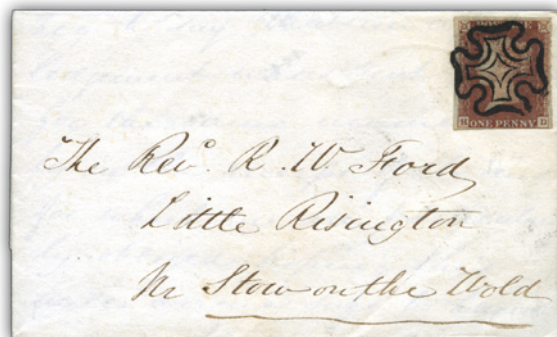 ONE PENNY
The Revd. R. W. Ford
Little Risington
Nr Stow on the Wold